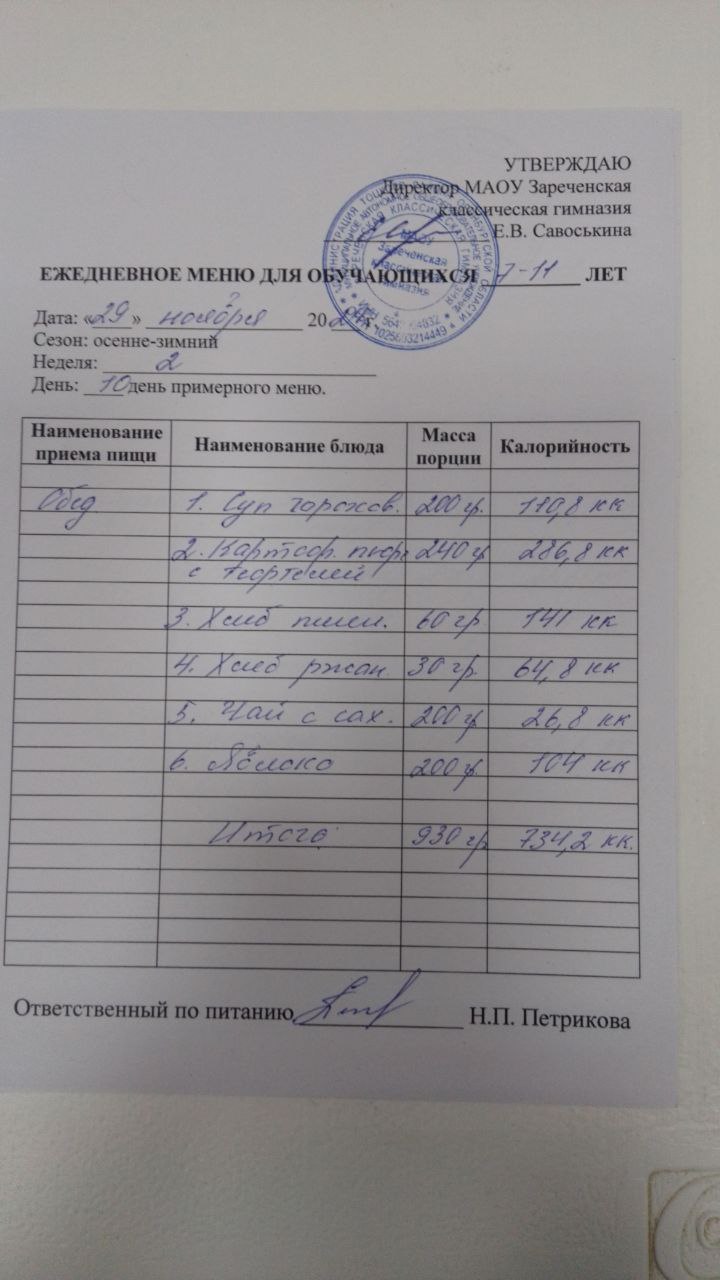 УТВЕРЖДАЮ
Директор МАОУ Зареченская
классическая гимназия
Е.В. Савоськина
ЕЖЕДНЕВНОЕ МЕНЮ ДЛЯ ОБУЧАЮЩИХСЯ 7-11 ЛЕТ
Дата: «29» ноября 20
Сезон: осенне-зимний
Неделя: 2
День: 10 день примерного меню.
Наименование приема пищи Наименование блюда Масса порции Калорийность
Обед 1. Суп горохов. 200 гр. 110,8 кк
2. Картоф. пюре 240 гр 286,8 кк
с тефтелей
3. Хлеб пшен. 60 гр 141 кк
4. Хлеб ржан. 30 гр. 64,8 кк
5. Чай с сах. 200 гр 26,8 кк
6. Яблоко 200 гр. 104 кк
Итого: 930 гр 734,2 кк.
Ответственный по питанию Н.П. Петрикова